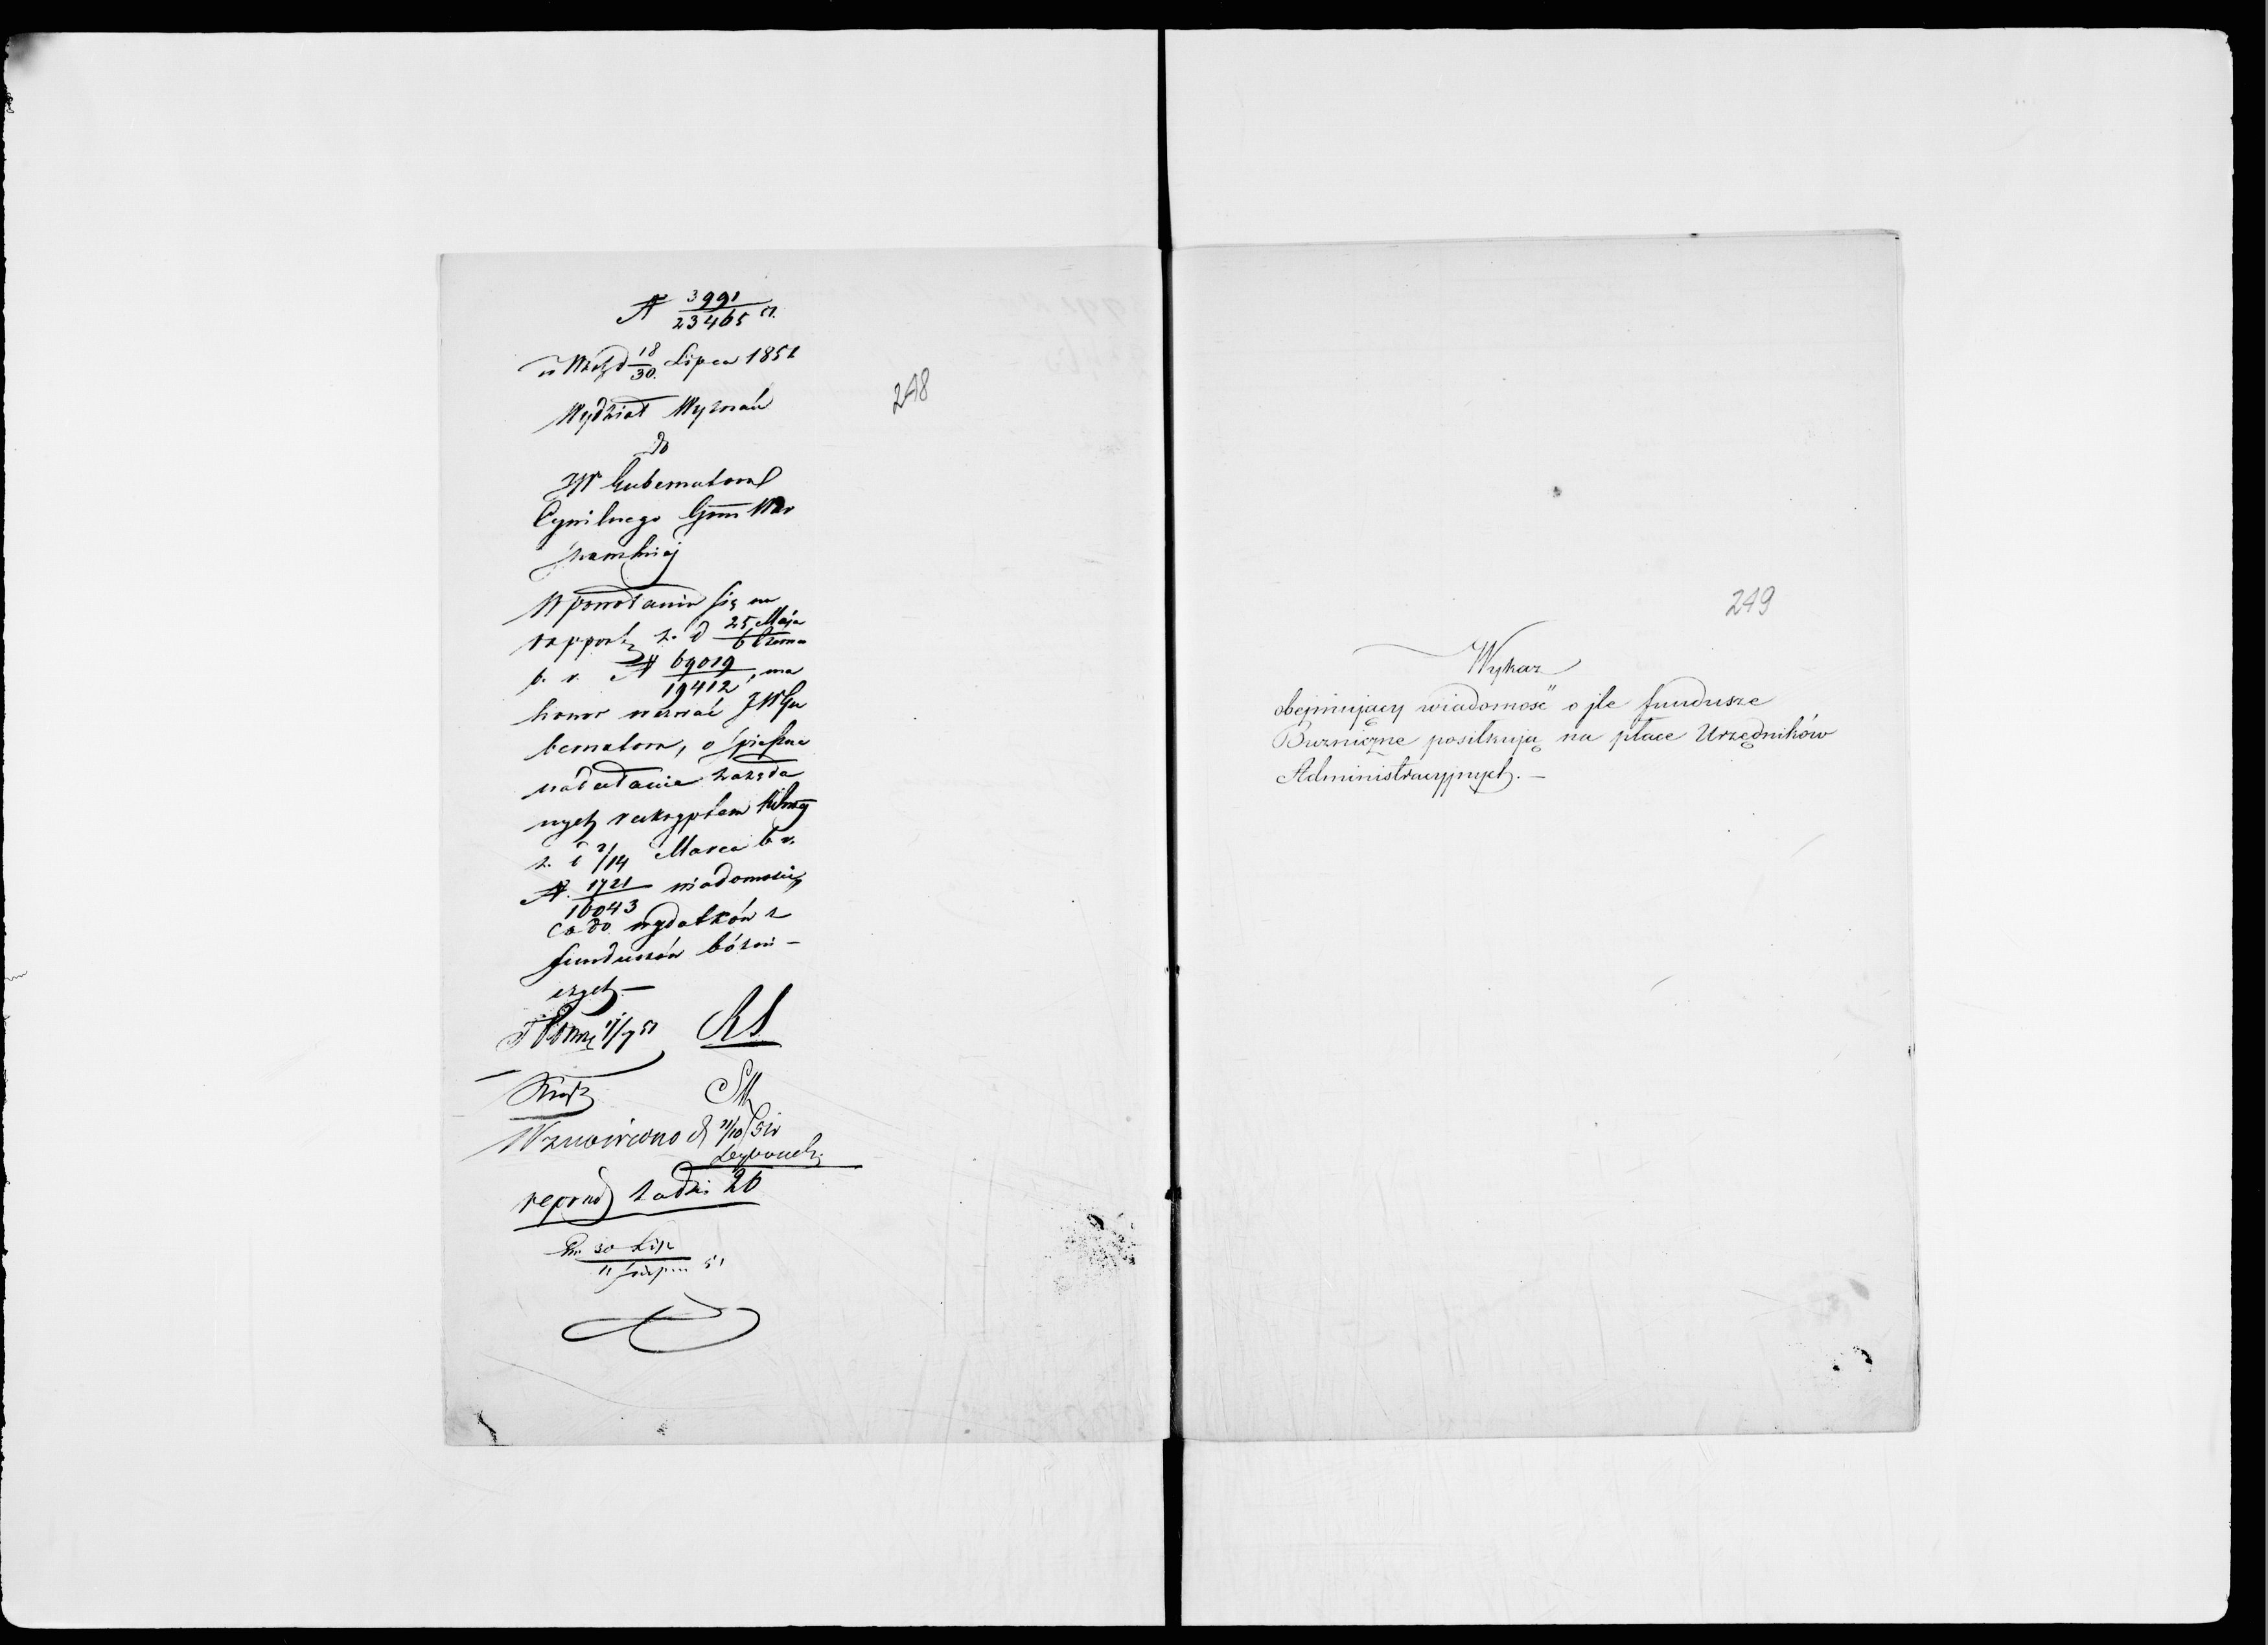 N 3991/23465
w Wrsz d 18/30. Lipca 1851
248
Wydział Wyznań
do
JW Gubernatora
Cywilnego Gub War
szawskiej
W powołaniu się na
rapport z. d 25 Maja/6 Czerwca
b. r. N 69019/19412, ma
honor wezwać JWGu
bernatora, o śpieszne
nadesłanie zażąda
nych reskryptem
z. d 2/14 Marca b r.
N. 1721/16043 wiadomości,
co do wydatków z
funduszów bóżni-
cznych.—
Wznowiono d 51r
reprod za dni 20
30 Lip/11 Sierpnia 51
249
Wykaz
obejmujący wiadomość o jle fundusze
Bużniczne posiłkują na płace Urzędników
Administracyjnych.—